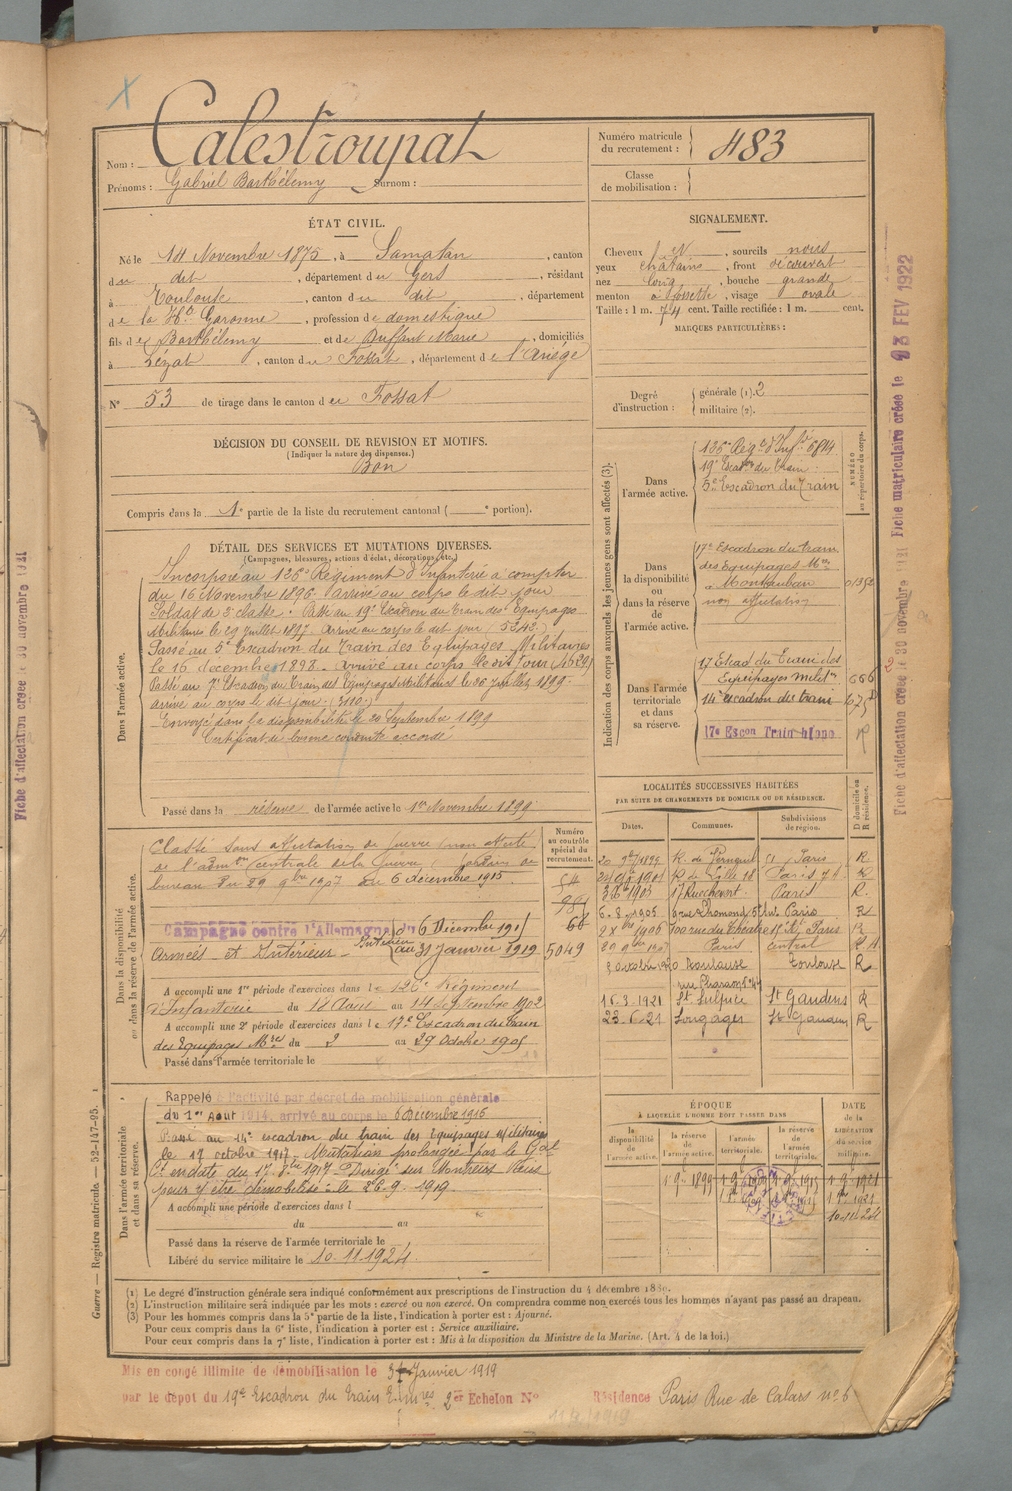 Nom : Calestroupat
Prénoms : Gabriel Barthélemy Surnom :
Numéro matricule du recrutement : 483
Classe de mobilisation :
ÉTAT CIVIL.
Né le 14 Novembre 1875, à Samatan, canton
du dit, département du Gers, résidant
à Toulouse, canton du dit, département
de la Hte Garonne, profession de domestique
fils de Barthélemy et de Buffant Marie, domiciliés
à Lézat, canton du Fossat, département de l'Ariége
N° 53 de tirage dans le canton du Fossat
DÉCISION DU CONSEIL DE REVISION ET MOTIFS.
(Indiquer la nature des dispenses.)
Bon
Compris dans la 1e partie de la liste du recrutement cantonal ( e portion).
SIGNALEMENT.
Cheveux N, sourcils noirs
yeux châtains, front découvert
nez long, bouche grande
menton à fossette, visage ovale
Taille : 1 m. 74 cent. Taille rectifiée : 1 m. cent.
MARQUES PARTICULIÈRES :
Degré d'instruction : générale (1). 2
militaire (2).
DÉTAIL DES SERVICES ET MUTATIONS DIVERSES.
(Campagnes, blessures, actions d'éclat, décorations, etc.)
Dans l'armée active.
Incorporé au 126e Régiment d'Infanterie à compter
du 16 Novembre 1896. Arrivé au corps le dit jour
Soldat de 2e classe. Passé au 19e Escadron du Train des Equipages
Militaires le 29 Juillet 1897. Arrivé au corps le dit jour (5242)
Passé au 5e Escadron du Train des Equipages Militaires
le 16 décembre 1898. arrivé au corps le dit jour (4629)
Passé au 7e Escadron du Train des Equipages Militaires le 26 Juillet 1899.
arrivé au corps le dit jour (3110)
Envoyé dans la disponibilité le 20 Septembre 1899
Certificat de bonne conduite accordé
Passé dans la réserve de l'armée active le 1er Novembre 1899
Indication des corps auxquels les jeunes gens sont affectés (3).
NUMÉRO au répertoire du corps.
Dans l'armée active.
126e Reg. d'Infie 6814
19e Escadon du Train
5e Escadron du Train
Dans la disponibilité ou dans la réserve de l'armée active.
17e Escadron du train
des Equipages Mres
Montauban
non affectation
Dans l'armée territoriale et dans sa réserve.
17 Escad du Train des
Equipages Milit 666
14e escadron du train
17e Escon Train blanc R
LOCALITÉS SUCCESSIVES HABITÉES
PAR SUITE DE CHANGEMENTS DE DOMICILE OU DE RÉSIDENCE.
Dates. Communes. Subdivisions de région. D domicile ou R résidence.
R. de Lille 18 Paris R
17 Rue Paris R.
6-8-1905 6 rue Lhomond Paris R
100 rue du Théatre Paris R
20 9bre 1907 Paris Central
Toulouse Toulouse R
16.3.1921 St Sulpice St Gaudens R
23.6.21 Longages St Gaudens R
Dans la disponibilité ou dans la réserve de l'armée active.
Numéro au contrôle spécial du recrutement.
Classé sans affectation de Guerre (non affecté
de l'admon centrale de la Guerre
bureau du 29 9bre 1907 au 6 décembre 1915.
Campagne contre l'Allemagne du 6 Décembre 191
Armées et Intérieur Intérieur au 31 Janvier 1919
54
981
66
5049
A accompli une 1re période d'exercices dans le 126e Régiment
d'Infanterie du 18 Aout au 14 septembre 1902
A accompli une 2e période d'exercices dans le 17e Escadron du train
des Equipages Mres du 2 au 29 Octobre 1905
Passé dans l'armée territoriale le
Dans l'armée territoriale et dans sa réserve.
Rappelé à l'activité par décret de mobilisation générale
du 1er Août 1914, arrivé au corps le 6 Décembre 1915
Passé au 14e escadron du train des Equipages Militaires
le 17 octobre 1917 - Mutation prolongée par le Gal
Ct en date du 17.8bre 1917 Dirigé sur
pour y être démobilisé le 26.9.1919
A accompli une période d'exercices dans l
du au
Passé dans la réserve de l'armée territoriale le
Libéré du service militaire le 10.11.1924.
ÉPOQUE
À LAQUELLE L'HOMME DOIT PASSER DANS
la disponibilité de l'armée active. la réserve de l'armée active. l'armée territoriale. la réserve de l'armée territoriale. DATE de la LIBÉRATION du service militaire.
10-11-24
(1) Le degré d'instruction générale sera indiqué conformément aux prescriptions de l'instruction du 4 décembre 1889.
(2) L'instruction militaire sera indiquée par les mots : exercé ou non exercé. On comprendra comme non exercés tous les hommes n'ayant pas passé au drapeau.
(3) Pour les hommes compris dans la 5e partie de la liste, l'indication à porter est : Ajourné.
Pour ceux compris dans la 6e liste, l'indication à porter est : Service auxiliaire.
Pour ceux compris dans la 7e liste, l'indication à porter est : Mis à la disposition du Ministre de la Marine. (Art. 4 de la loi.)
Mis en congé illimité de démobilisation le 31 Janvier 1919
par le dépôt du 19e Escadron du Train 2er Echelon N° Résidence Paris Rue de Calais no 6
Guerre — Registre matricule. — 52-147-95.
Fiche d'affectation créée le 30 novembre 1921
Fiche d'affectation créée le 30 novembre 1921 Fiche matriculaire créée le 23 FEV 1922